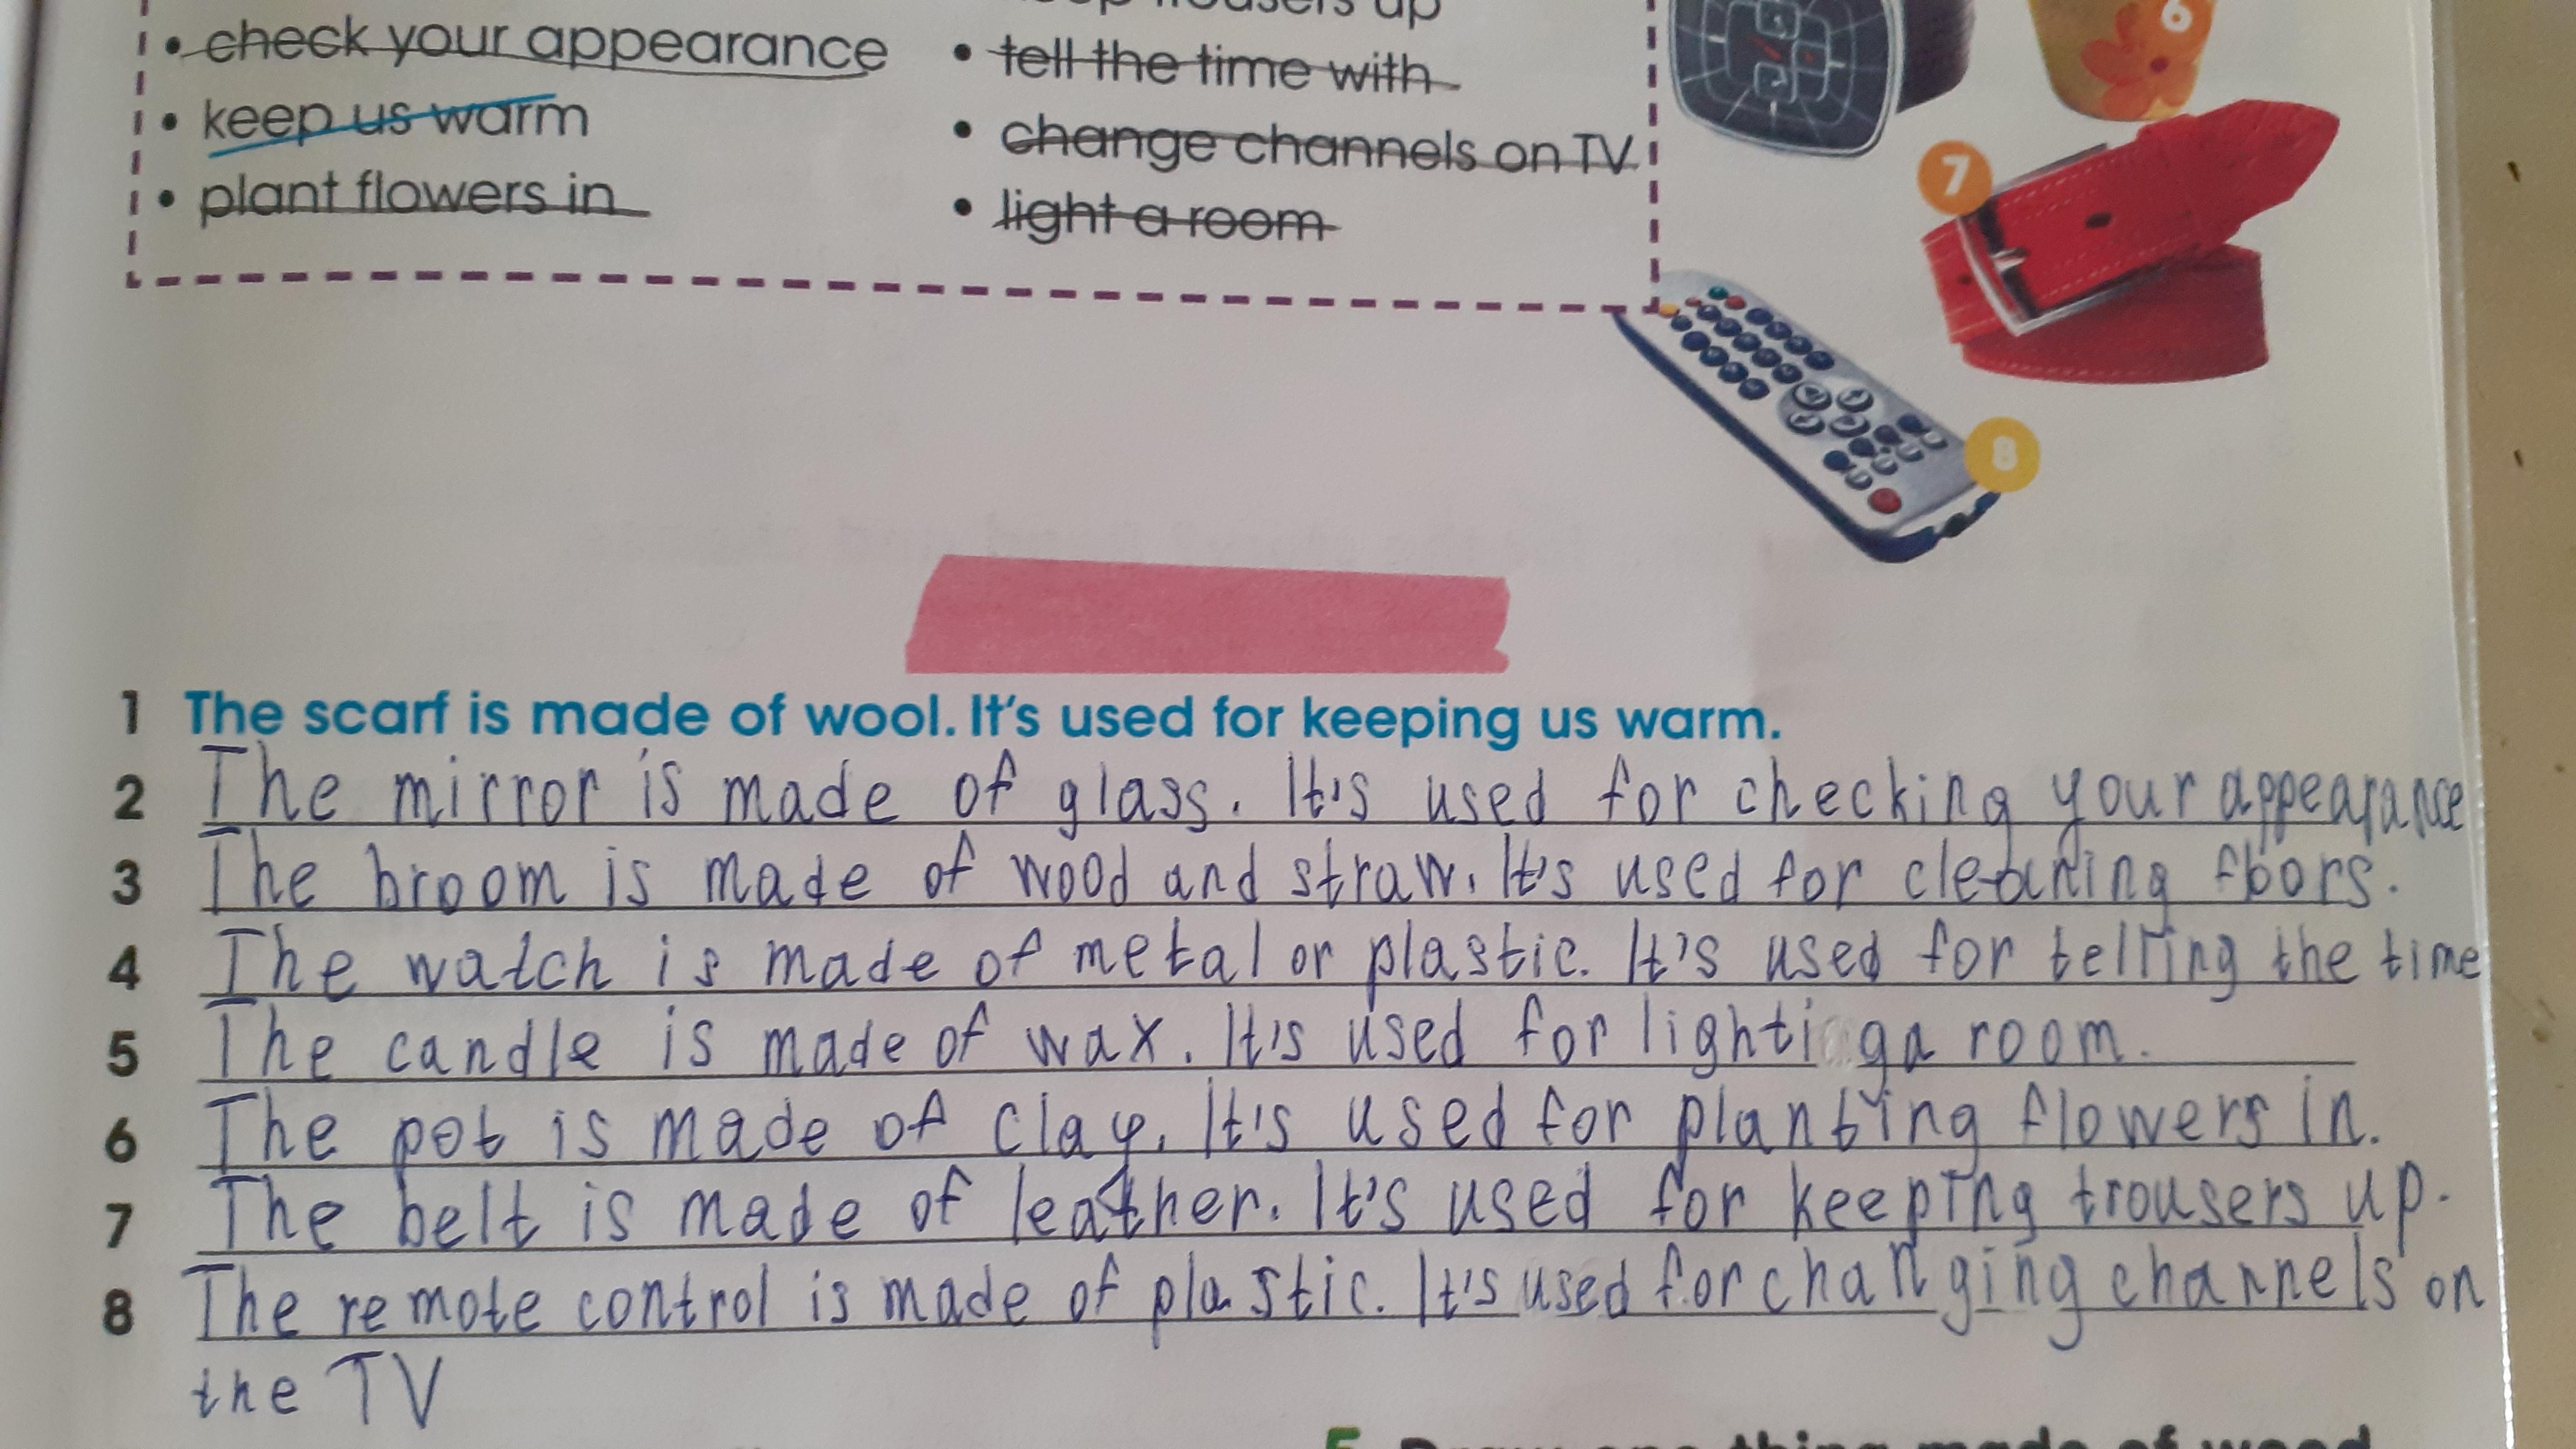 keep trousers up
• check your appearance
• tell the time with
• keep us warm
• change channels on TV
• plant flowers in
• light a room
6
7
8
1 The scarf is made of wool. It's used for keeping us warm.
2 The mirror is made of glass. It's used for checking your appearance
3 The broom is made of wood and straw. It's used for cleaning floors.
4 The watch is made of metal or plastic. It's used for telling the time
5 The candle is made of wax. It's used for lighti ga room.
6 The pot is made of clay. It's used for planting flowers in.
7 The belt is made of leather. It's used for keeping trousers up.
8 The remote control is made of plastic. It's used for changing channels on
the TV
5 Draw one thing made of wood